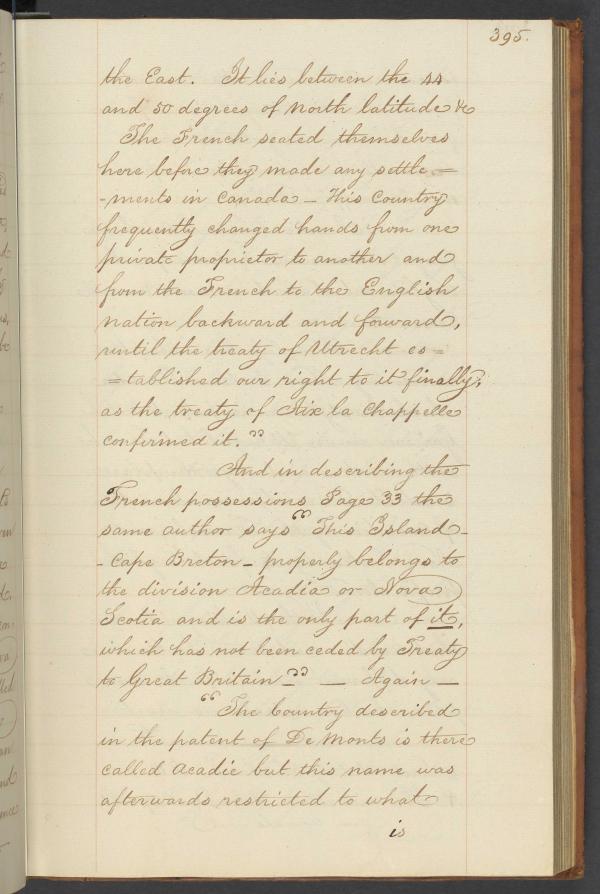 395.
the East. It lies between the 44
and 50 degrees of North latitude &c
The French seated themselves
here before they made any settle=
-ments in Canada - This Country
frequently changed hands from one
private proprietor to another and
from the French to the English
nation backward and forward,
until the treaty of Utrecht es=
=tablished our right to it finally,
as the treaty of Aix la Chappelle
confirmed it."
And in describing the
French possessions Page 33 the
same author says "This Island -
- Cape Breton - properly belongs to
the division Acadia or Nova
Scotia and is the only part of it,
which has not been ceded by Treaty
to Great Britain -" — Again —
"The Country described
in the patent of De Monts is there
called Acadie but this name was
afterwards restricted to what
is